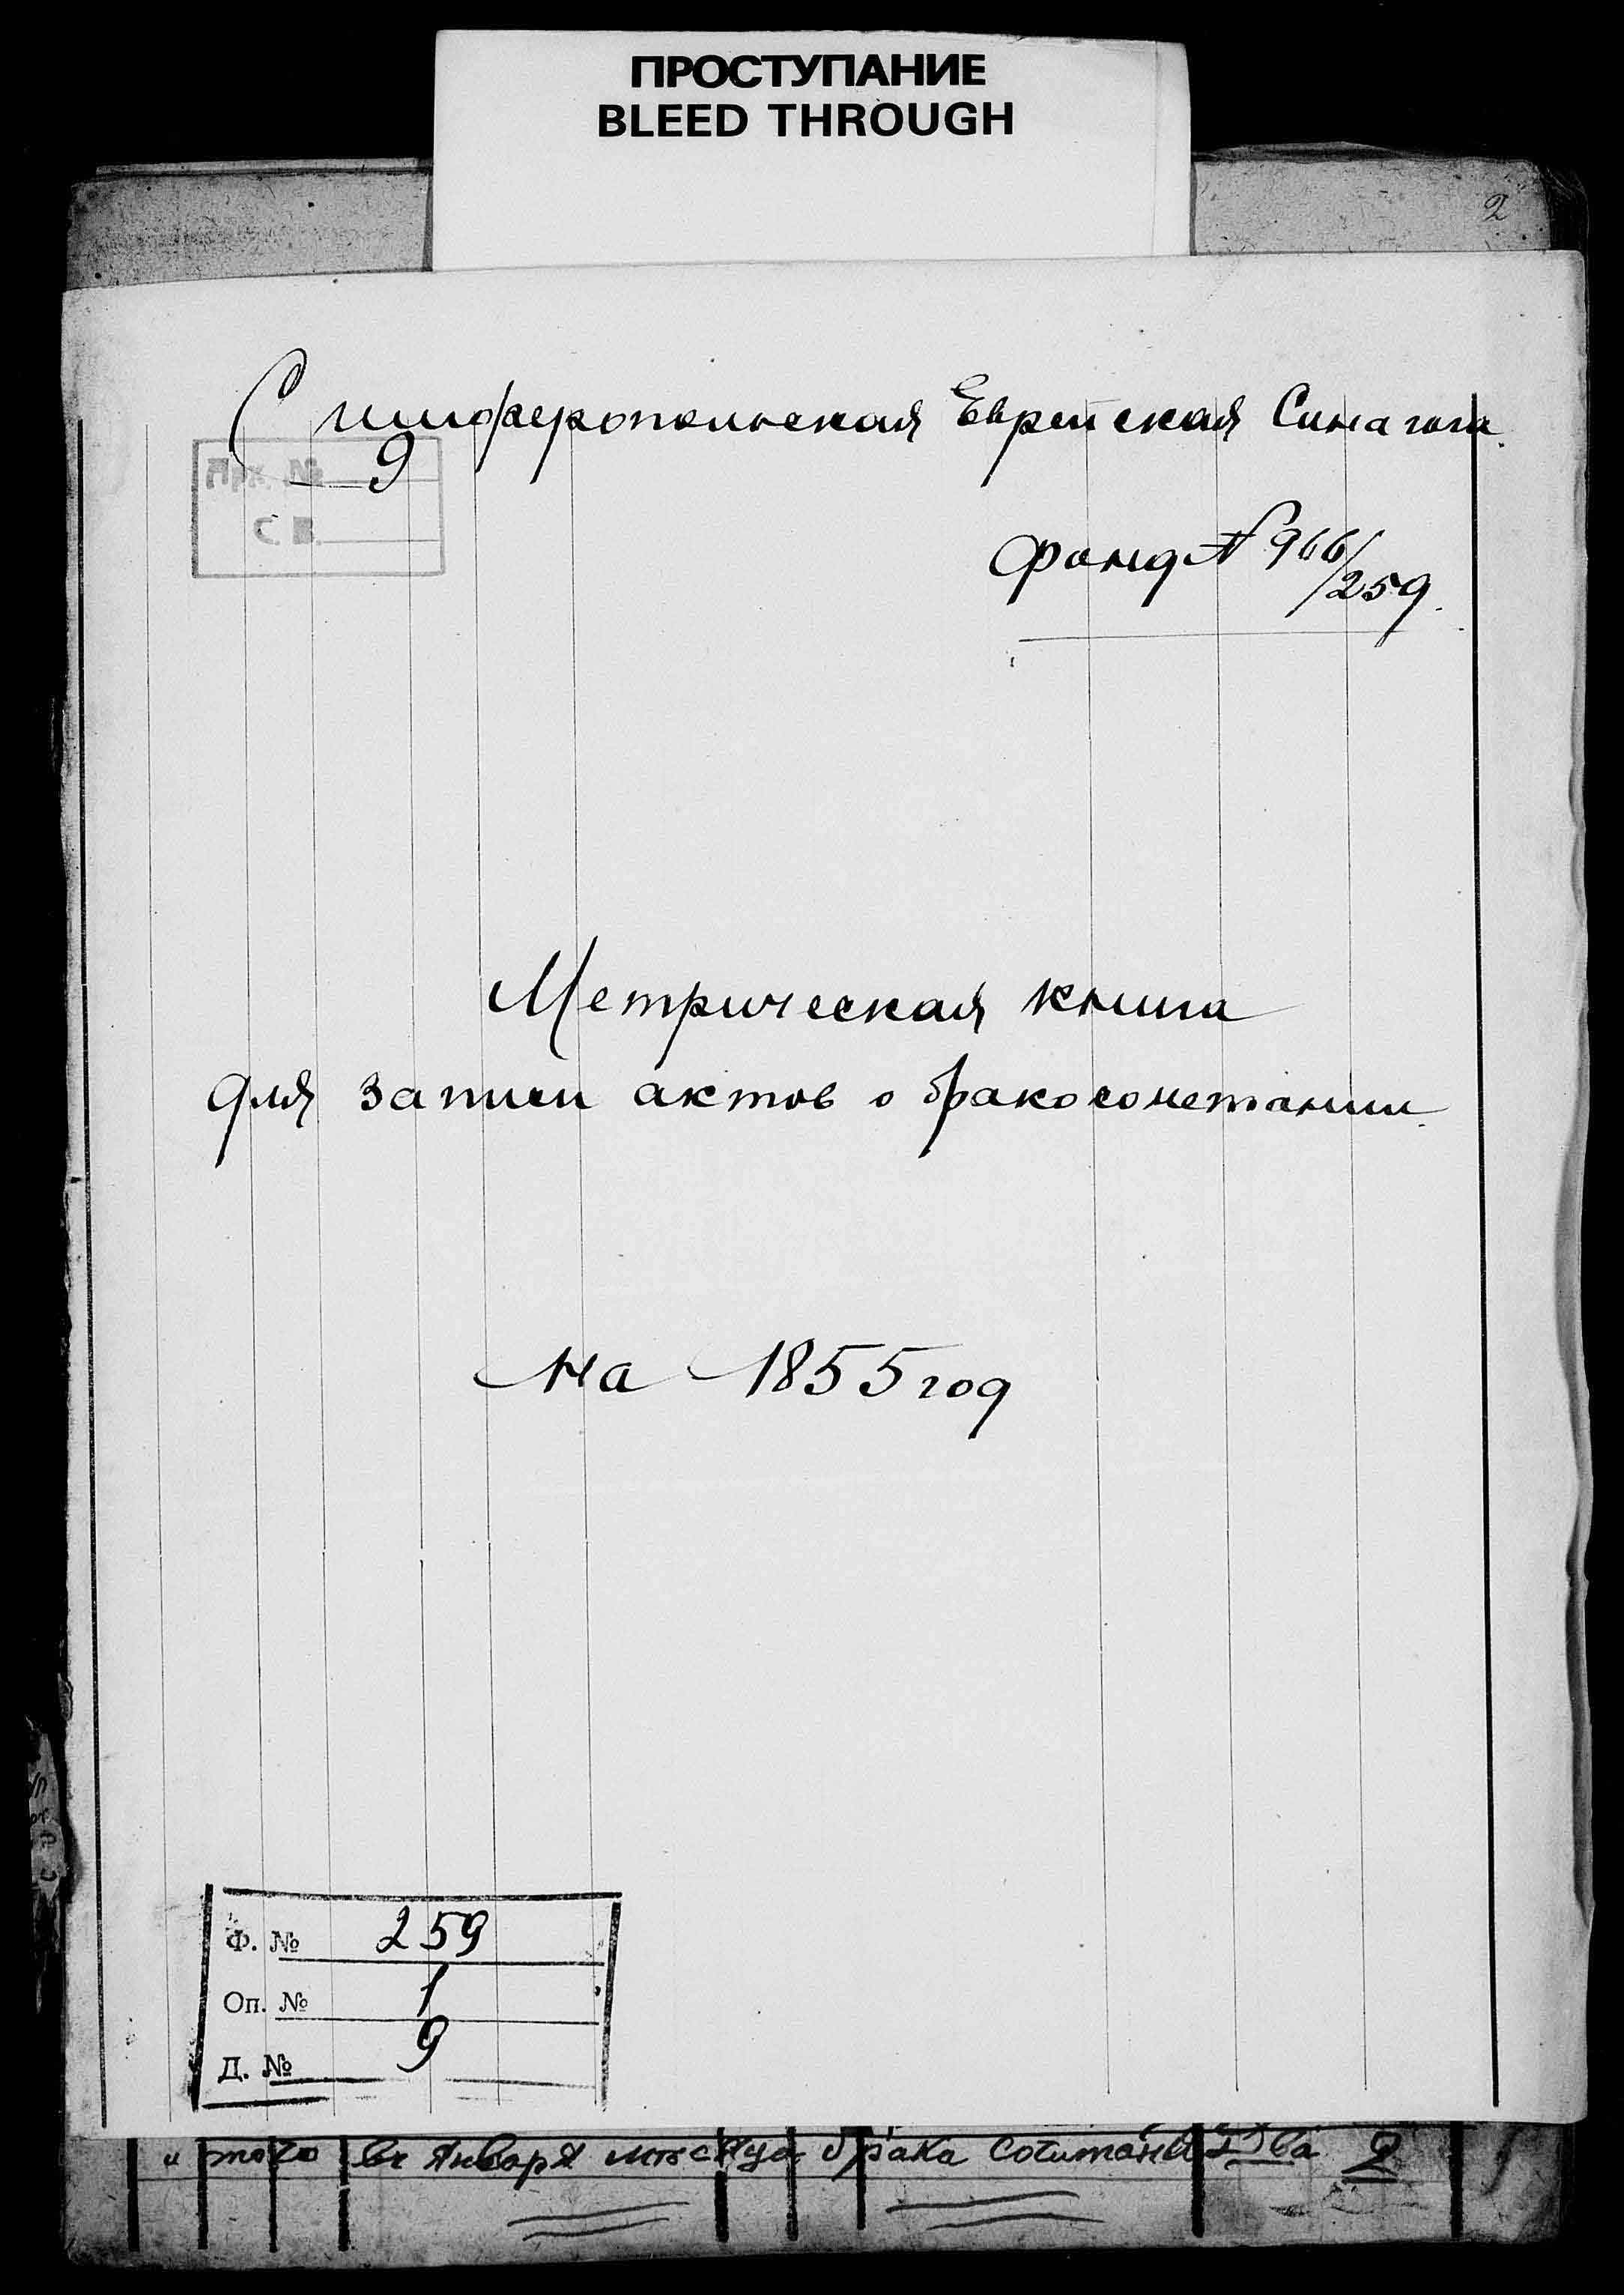 ПРОСТУПАНИЕ
BLEED THROUGH
2
Симферопольская Еврейская Синагога.
Арх. № 9
С. В.
Фонд № 966/259.
Метрическая книга
для записи актов о бракосочетании.
на 1855 год
Ф. № 259
Оп. № 1
Д. № 9
и того въ Январѣ мѣсяцѣ брака два 2